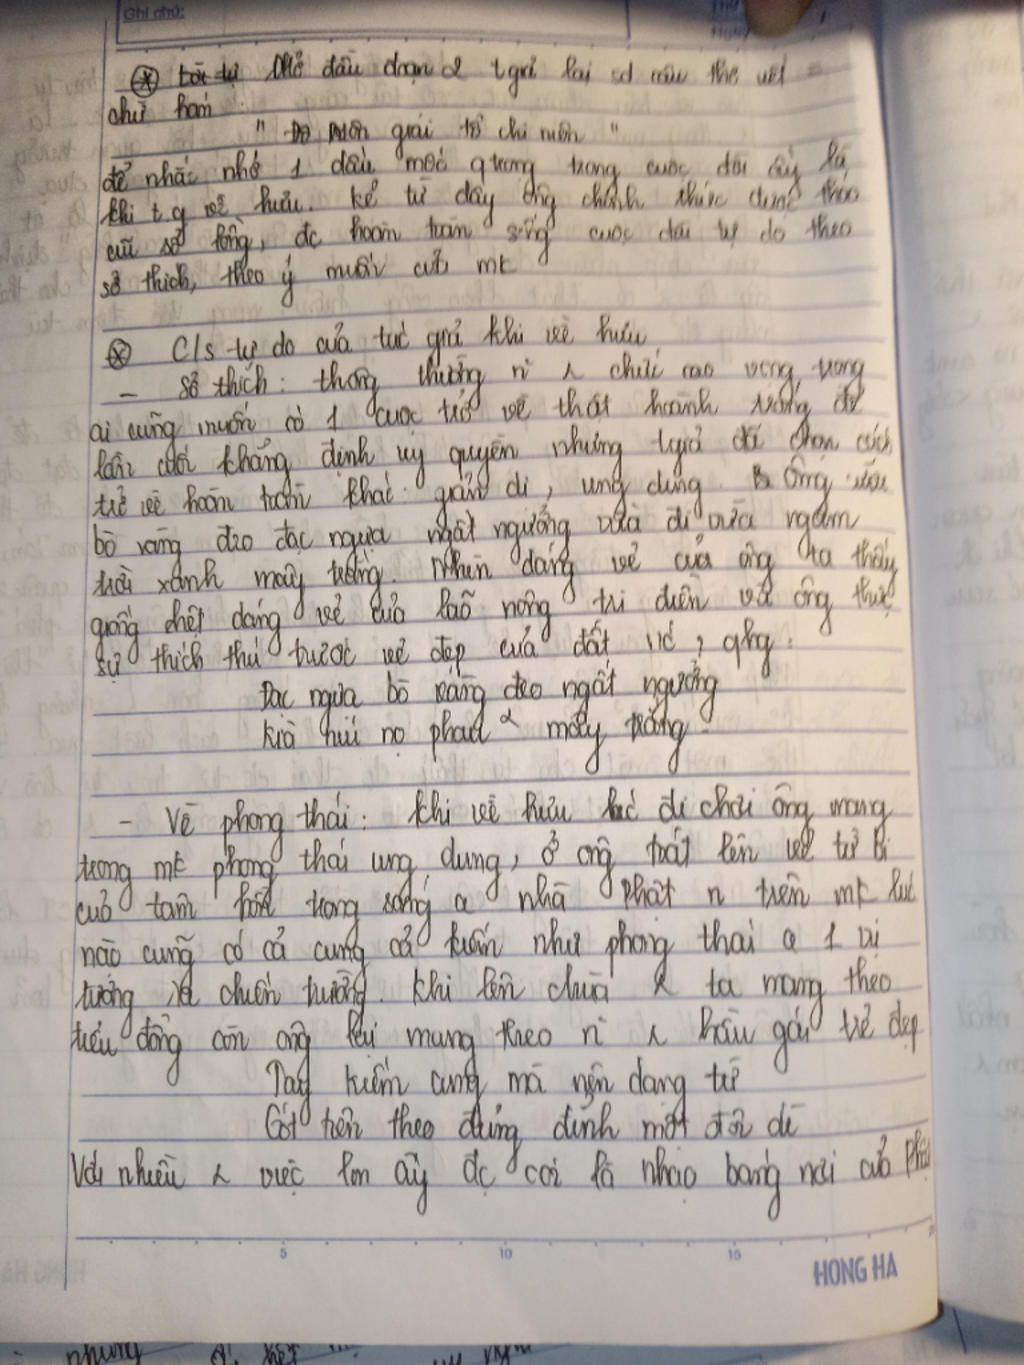 Ghi chú:
Mở đầu đoạn 2 tgiả lại sd câu thơ viết
chữ hán
" Đô môn giải tổ chi niên "
để nhắc nhớ 1 dấu mốc qtrọng trong cuộc đời ấy là
khi t.g về hưu. Kể từ đây ông chính thức được tháo
cũi sổ lồng, đc hoàn toàn sống cuộc đời tự do theo
sở thích, theo ý muốn của mk
C/s tự do của tác giả khi về hưu
- Sở thích: thông thường n chức cao vọng trọng
ai cũng muốn có 1 cuộc trở về thật hoành tráng để
lần cuối khẳng định uy quyền nhưng tgiả đã chọn cách
trở về hoàn toàn khác: giản dị, ung dung. Ông
bò vàng đeo đạc ngựa ngất ngưởng vừa đi vừa ngắm
trời xanh mây trắng. Nhìn dáng vẻ của ông ta thấy
giống hệt dáng vẻ của lão nông tri điền và ông thực
sự thích thú trước vẻ đẹp của đất nc, qhg.
Đạc ngựa bò vàng đeo ngất ngưởng
Kìa núi nọ phau mây trắng
- Về phong thái: Khi về hưu lúc đi chơi ông mang
trong mk phong thái ung dung, ở ông toát lên vẻ từ bi
của tâm hồn trong sáng a nhà Phật n trên mk lúc
nào cũng có cả cung cả kiếm như phong thái a 1 vị
tướng ra chiến trường. Khi lên chùa ta mang theo
tiểu đồng còn ông lại mang theo n hầu gái trẻ đẹp
Tay kiếm cung mà nên dạng từ
Gót tiên theo đủng đỉnh một đôi dì
Với nhiều việc làm ấy đc coi là nhạo báng nơi của
5 10 15
HONG HA